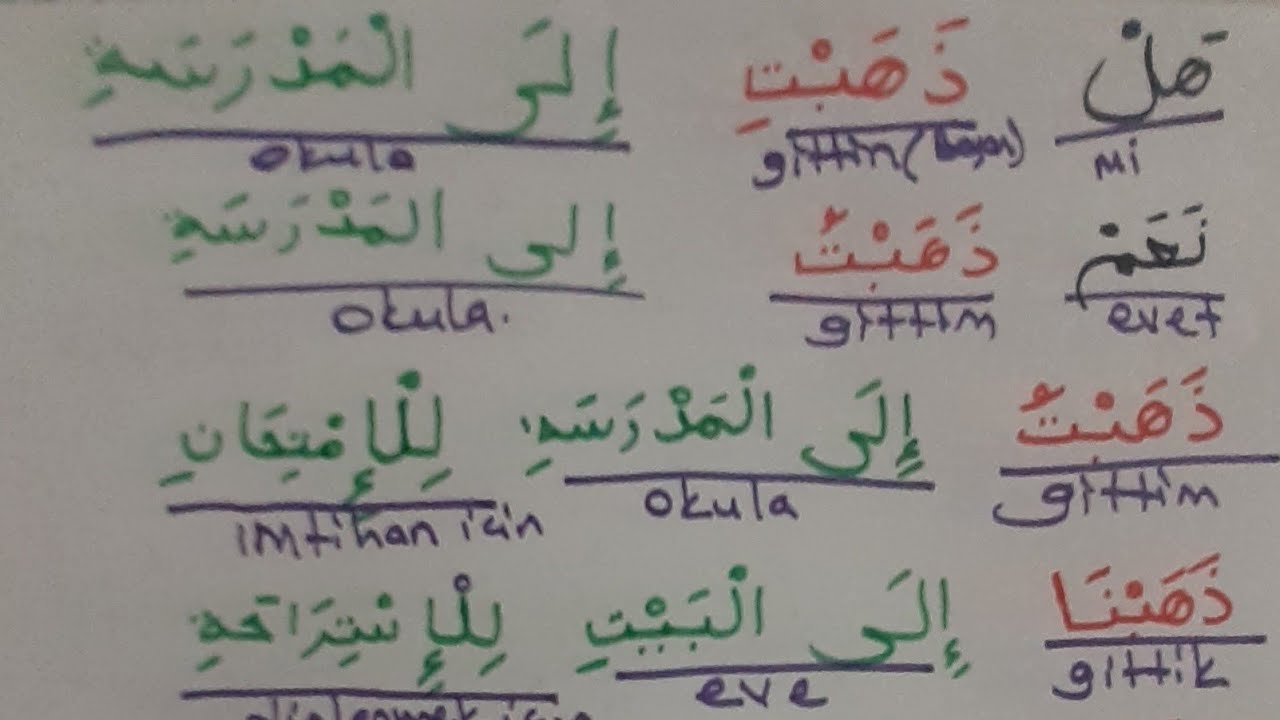 هَلْ ذَهَبْتِ إِلَى الْمَدْرَسَةِ
mi gittin (bayan) okula
نَعَمْ ذَهَبْتُ إِلى المَدْرَسَةِ
evet gittim okula.
ذَهَبْتُ إِلَى الْمَدْرَسَةِ لِلْإِمْتِحَانِ
gittim okula imtihan için
ذَهَبْنَا إِلَى الْبَيْتِ لِلْإِسْتِرَاحَةِ
gittik eve